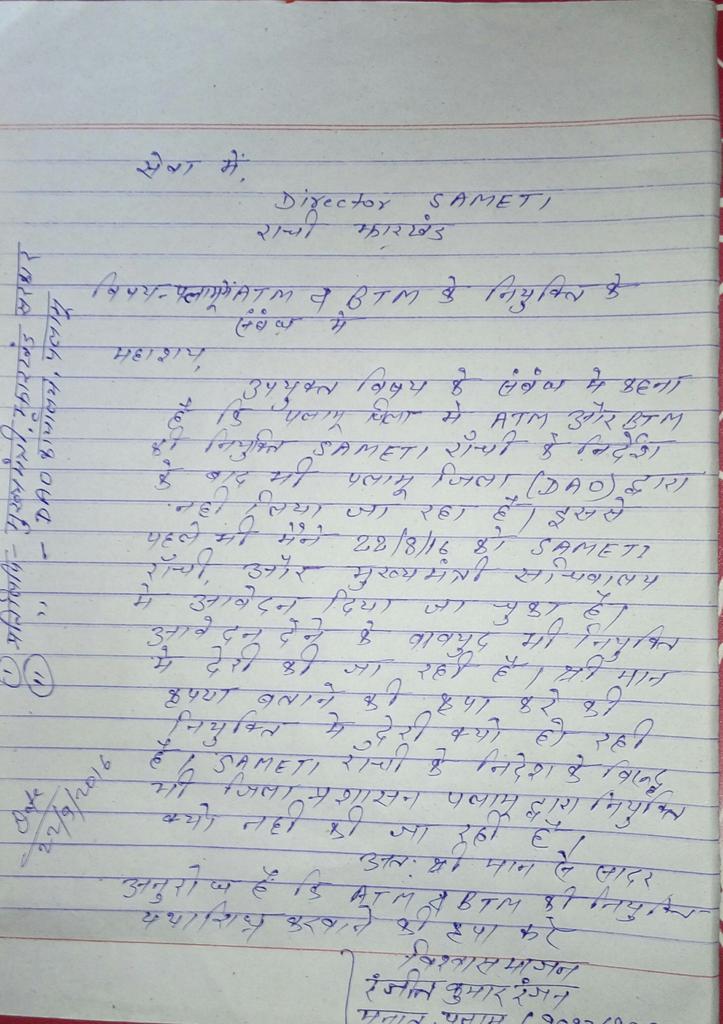 सेवा में,
Director SAMETI
राची झारखंड
विषय- पलामू में ATM व BTM के नियुक्ति के
संबंध में
महाशय,
उपयुक्त विषय के संबंध में कहना
है कि पलामू जिला में ATM और BTM
की नियुक्ति SAMETI राँची के निर्देश
के बाद भी पलामू जिला (DAO) द्वारा
नही लिया जा रहा है। इससे
पहले भी मैंने 22/8/16 को SAMETI
राँची, और मुख्यमंत्री सचिवालय
मे आवेदन दिया जा चुका है।
आवेदन देने के बावयुद भी नियुक्ति
मे देरी की जा रही है। श्री मान
कृपया बताने की कृपा करे की
नियुक्ति मे देरी क्यो हो रही
है। SAMETI राँची के निदेश के विरुद्ध
भी जिला प्रशासन पलामू द्वारा नियुक्ति
क्यो नही की जा रही है।
अतः श्री मान से सादर
अनुरोध है कि ATM व BTM की नियुक्ति
यथाशिघ्र करवाने की कृपा करे
विश्वासभाजन
रंजीत कुमार रंजन
पलामू
प्रतिलिपि -
(i)
(ii) " - DAO कार्यालय, पलामू
Date
22/9/2016